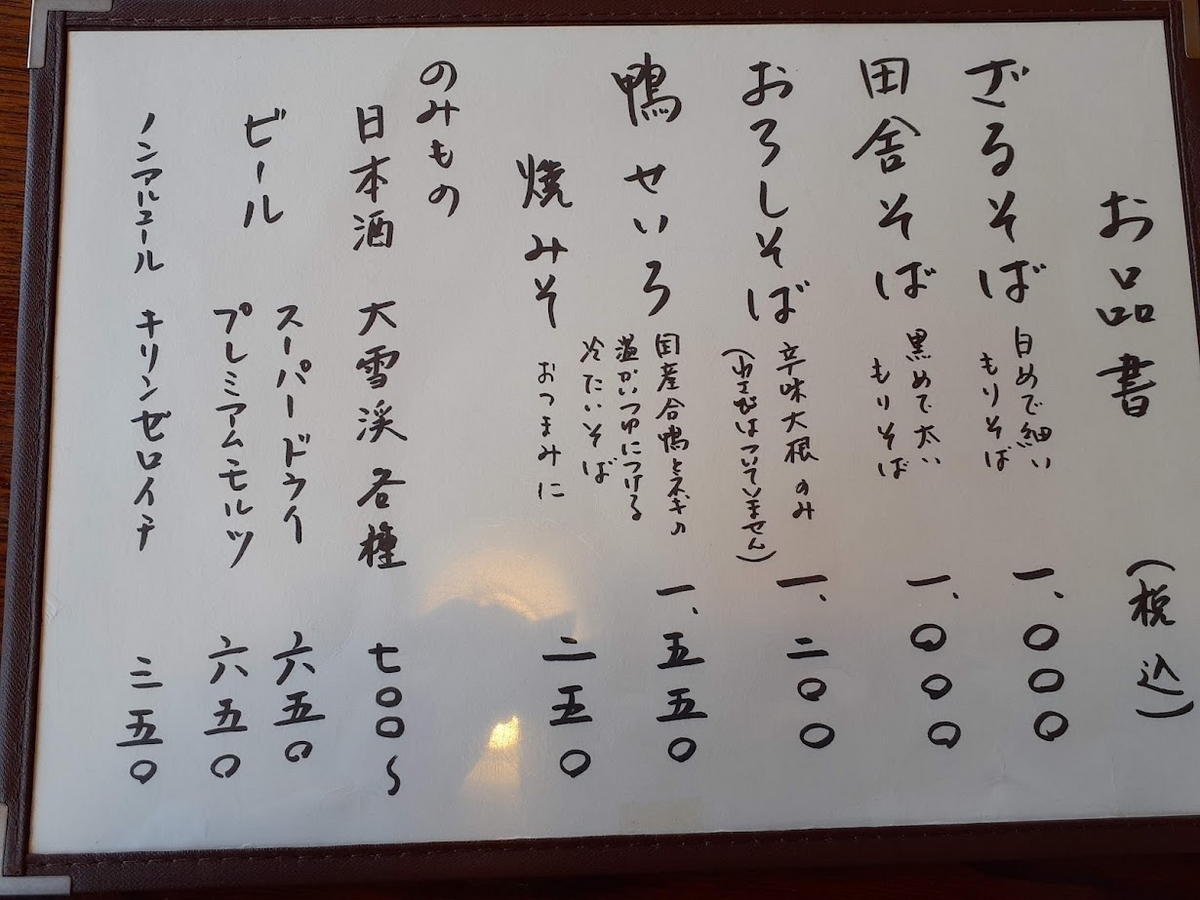 お品書 (税込)
ざるそば 白めで細い
もりそば 一、〇〇〇
田舎そば 黒めで太い
もりそば 一、〇〇〇
おろしそば 辛味大根のみ
(わさびはついていません) 一、二〇〇
鴨せいろ 国産合鴨とネギの
温かいつゆにつける
冷たいそば 一、五五〇
焼みそ おつまみに 二五〇
のみもの
日本酒 大雪渓 各種 七〇〇〜
ビール スーパードライ 六五〇
プレミアムモルツ 六五〇
ノンアルコール キリンゼロイチ 三五〇